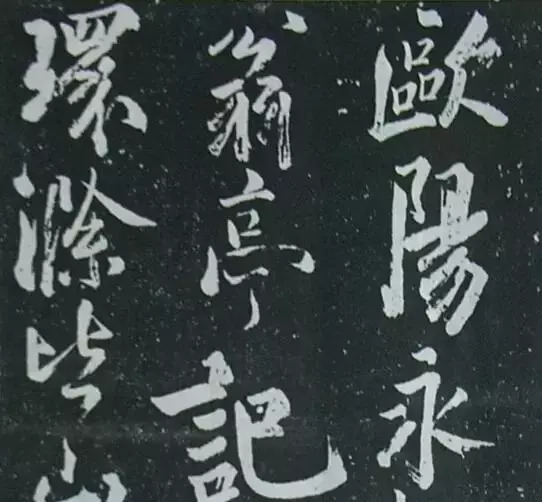 歐陽永
翁亭記
環滁皆山